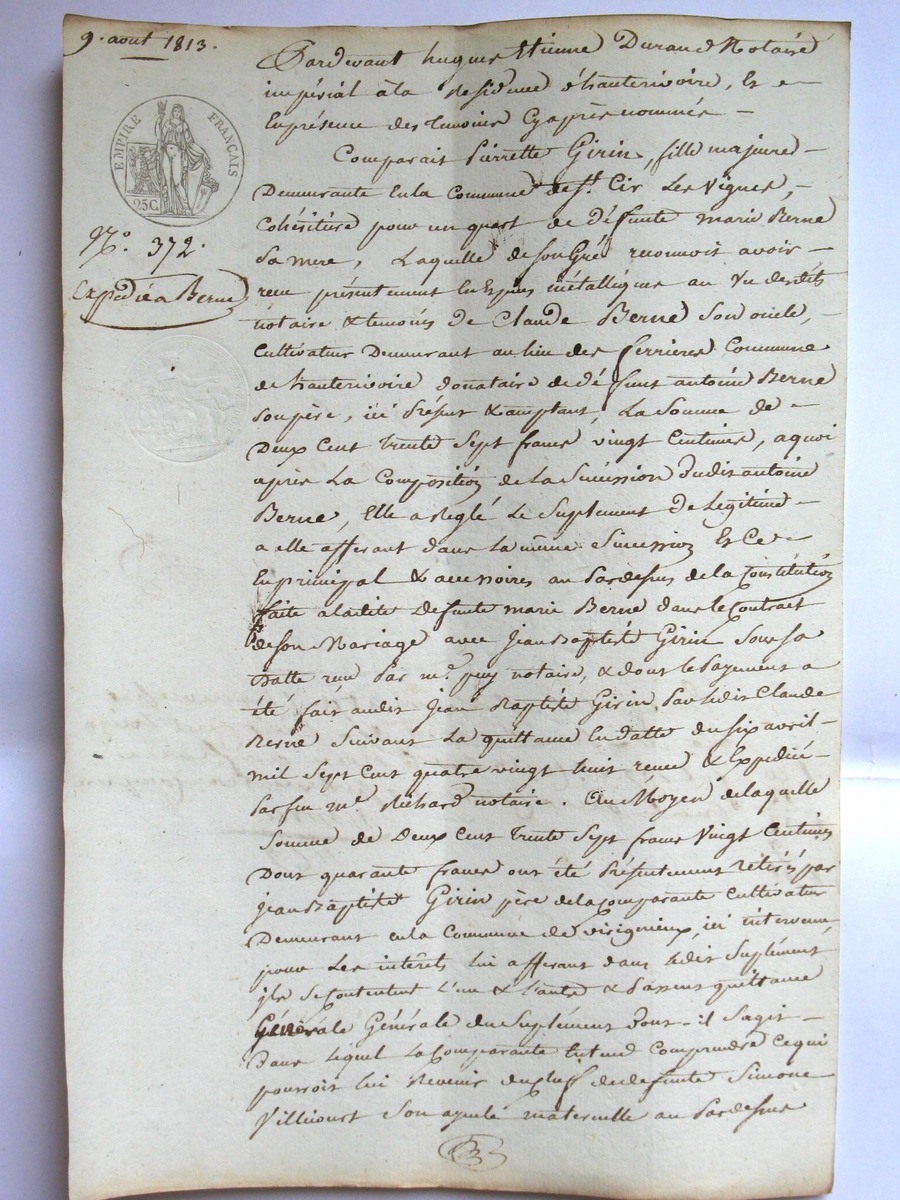 9. aout 1813.
EMPIRE FRANÇAIS
25C.
N.o 372.
Expedié a Berne
Pardevant hugues Etienne Durand Notaire
impérial à la Residence d'hauterivoire, Et
En présence des temoins Cyaprès nommés
Comparait Pierrette Girin, fille majeure
Demeurante En la Commune de St. Cir Les Vignes,
Cohéritière pour un quart de défunte marie Berne
Sa mere, Laquelle de son Gré reconnoit avoir
recu présentement En Espèces métalliques au Vu desdits
notaire & temoins De Claude Berne Son oncle,
Cultivateur Demeurant au lieu des ferrieres Commune
de hauterivoire donataire de défunt antoine Berne
son père, ici Présent & acceptant, La Somme de
Deux Cent trente Sept francs vingt Centimes, a quoi
après La Composition de La Succession dudit antoine
Berne, Elle a Reglé Le Suplement De Legitime
a elle afferant dans La même Succession Et Ce
En principal & accessoires au Pardessus de la Constitution
faite a ladite Defunte marie Berne dans le Contrat
de son Mariage avec Jean Baptiste Girin Sous Sa
Datte recu Par me. puy notaire, & dont le Payement a
été fait audit Jean Baptiste Girin, Par ledit Claude
Berne Suivant La quittance En Datte du Six avril
mil Sept Cent quatre vingt huit recue & Expediée
Par feu me. Richard notaire. Au Moyen de laquelle
Somme de Deux Cent trente Sept francs Vingt Centimes
Dont quarante francs ont été Présentement retirés par
Jean Baptiste Girin père de la Comparante Cultivateur
Demeurant en la Commune de virignieux, ici intervenu
pour Les intérêts lui afferant dans ledit Suplément,
ils Se Contentent L'un & L'autre & Passent quittance
Générale Générale du Suplément Dont il S'agit
Dans lequel La Comparante Entend Comprendre Ce qui
pourroit lui Revenir du chef de defunte Simone
Villicourt Son ayeule maternelle au Pardessus